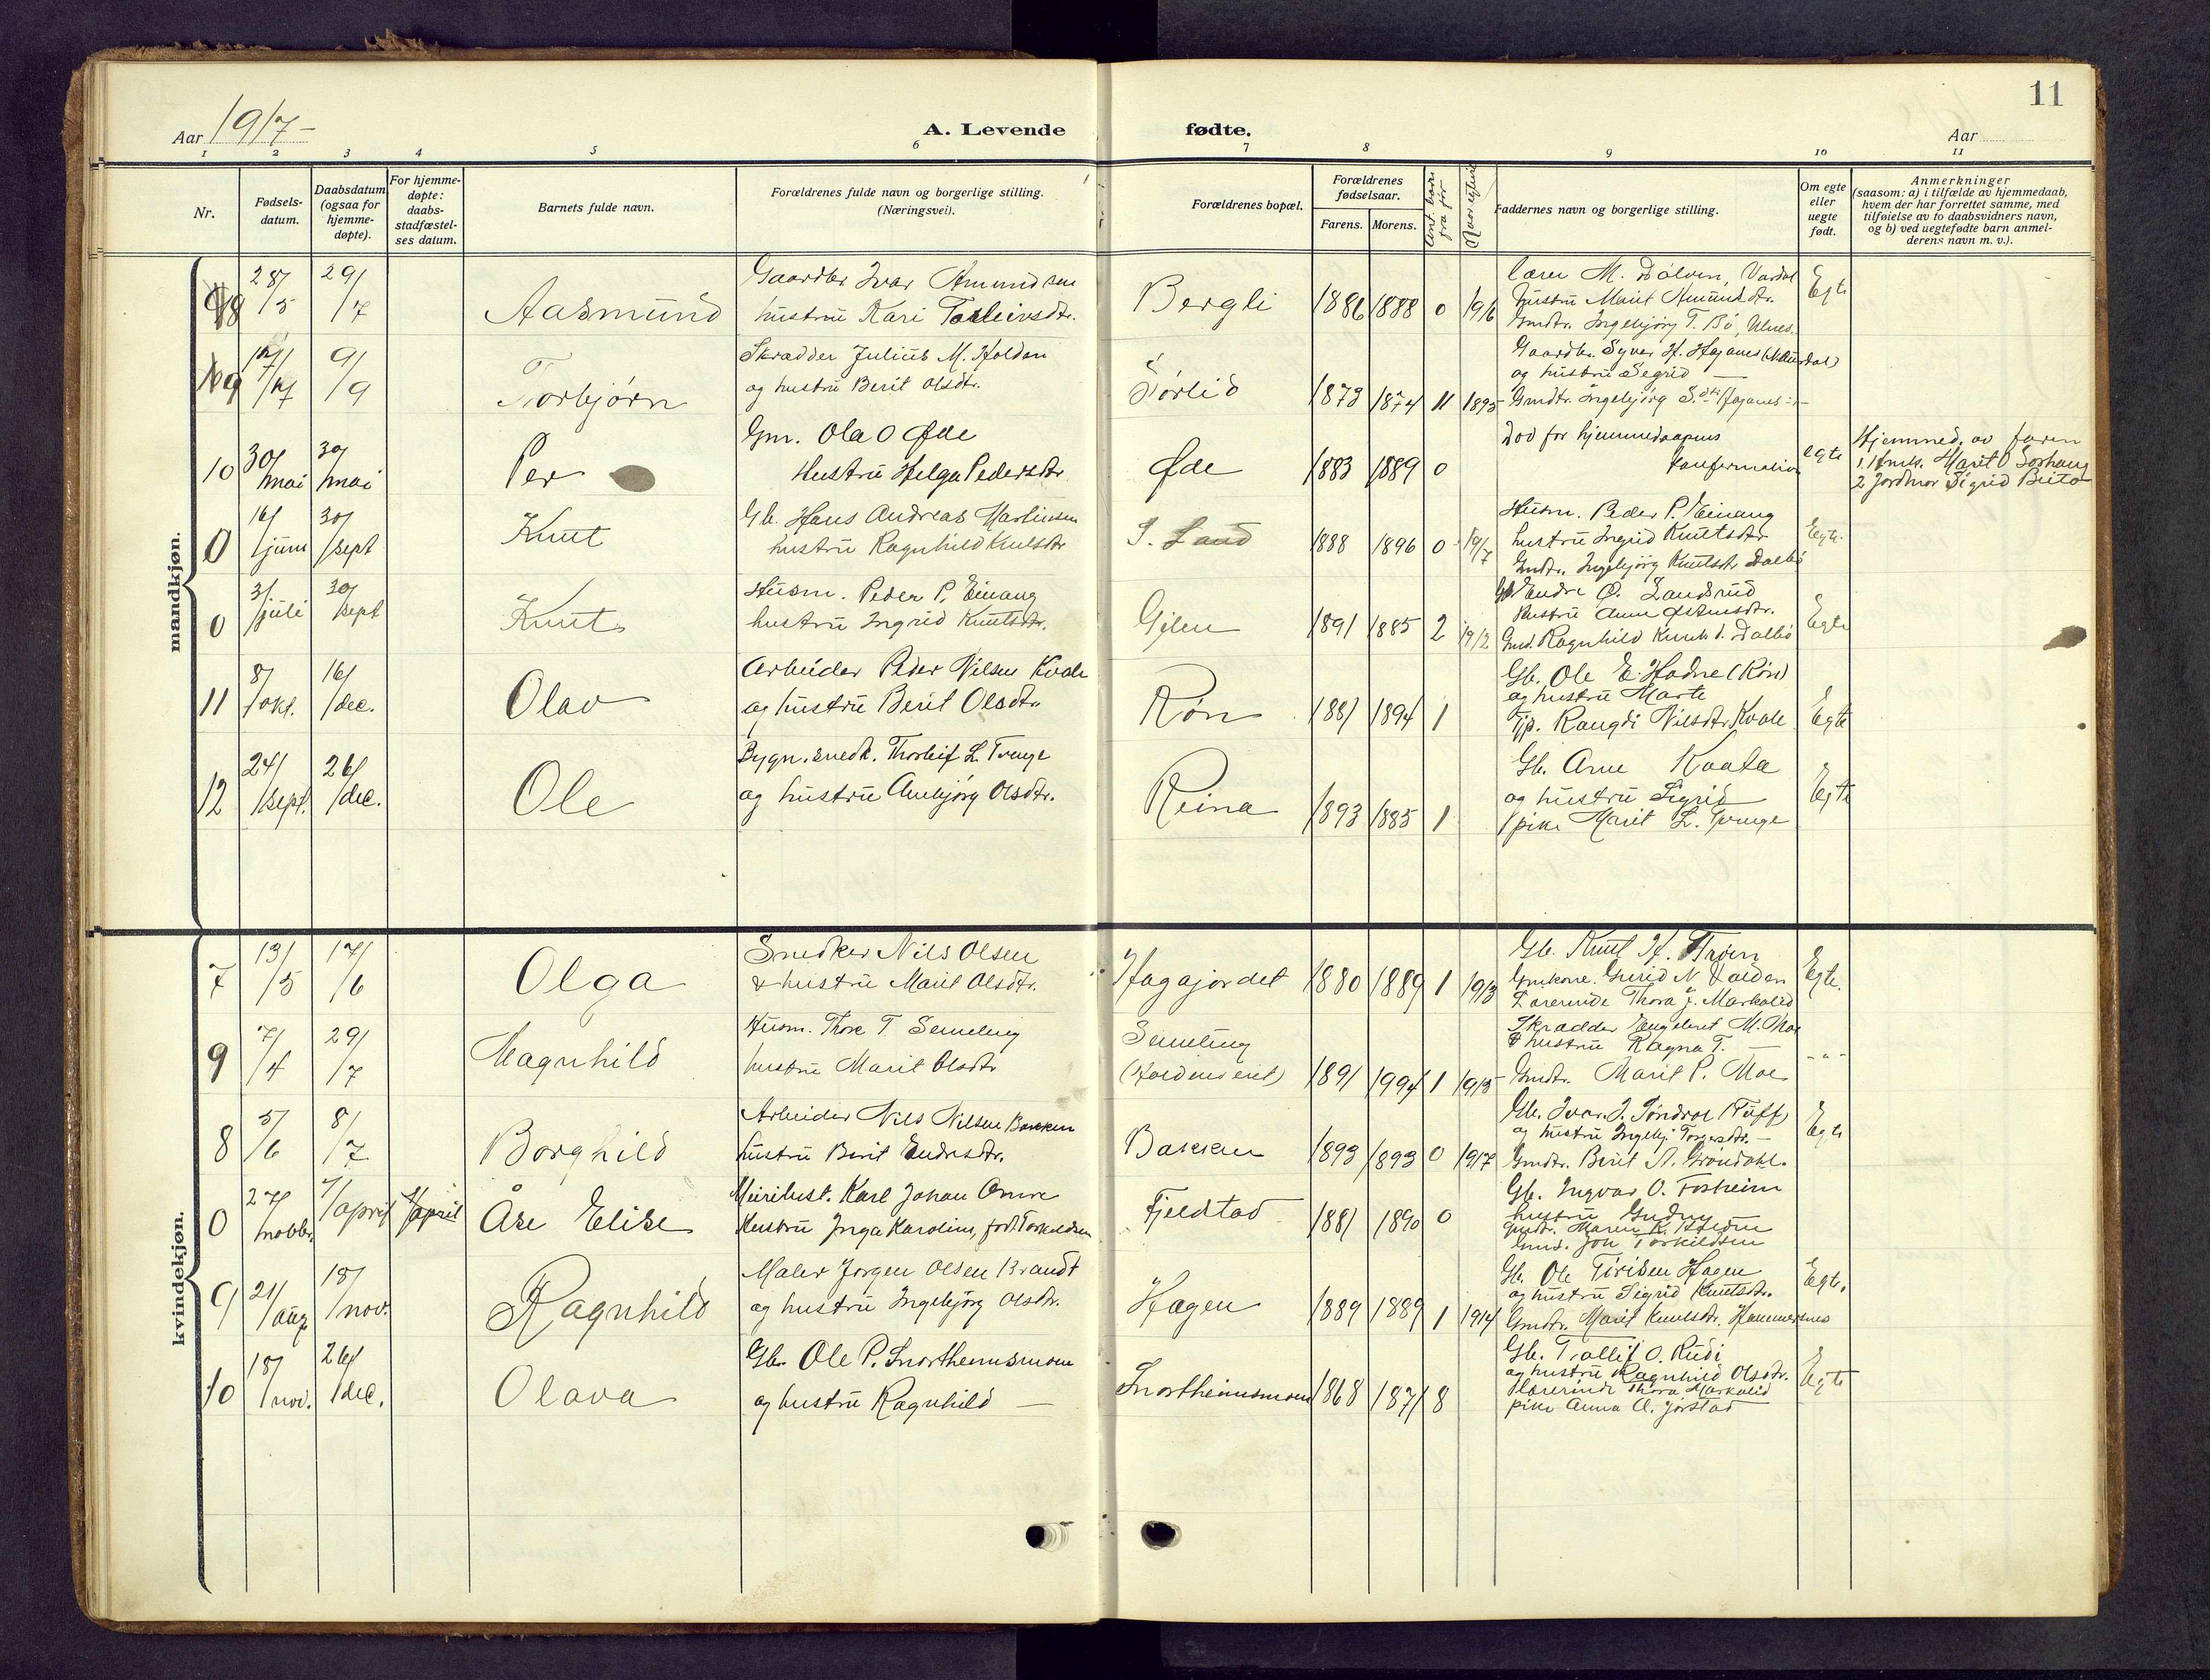 11
Aar 1917-
A. Levende
fødte.
Aar
1 2 3 4 5 6 7 8 9 10 11
Nr.
Fødsels-
datum.
Daabsdatum
(ogsaa for
hjemme-
døpte).
For hjemme-
døpte:
daabs-
stadfæstel-
ses datum.
Barnets fulde navn.
Forældrenes fulde navn og borgerlige stilling.
(Næringsvei).
Forældrenes bopæl.
Forældrenes
fødselsaar.
Farens. Morens.
Faddernes navn og borgerlige stilling.
Om egte
eller
uegte
født.
Anmerkninger
(saasom: a) i tilfælde av hjemmedaab,
hvem der har forrettet samme, med
tilføielse av to daabsvidners navn,
og b) ved uegtefødte barn anmel-
derens navn m. v.).
mandkjøn.
8 28/5 29/7 Aasmund
Gaardbr Ivar Amundsen
hustru Kari Torleivsdtr.
Bergli 1886 1888 0 1916
Lærer M. Dølven, Vardal
hustru Marit Amundsdtr.
Gmdtr. Ingebjørg T. Bø, Ulnes.
Egte
9 9/9 Torbjørn
Skrædder Julius M. Holden
og hustru Berit Olsdtr.
Sørlid 1873 1874 11 1895
Gaardbr. Syver H. Høganes
og hustru Segrid —
Gmdtr. Ingebjørg S. Høganes
10 30/mai 30/mai Per
Gm. Ola O Øde
Hustru Helga Pedersdtr
Øde 1883 1889 0
Død før hjemmedaapens
konfirmation
egte
Hjemmed. av faren
2 Jordmor Sigrid Beito
0 16/juni 30/sept Knut
Gb. Hans Andreas Martinsen
hustru Ragnhild Knutsdtr
S. Land 1888 1896 0 1917
Husm. Peder P. Einang
hustru Ingrid Knutsdtr
Gmdtr. Ingebjørg Knutsdtr Dalbø
Egte.
0 3/juli 30/sept Knut
Husm. Peder P. Einang
hustru Ingrid Knutsdtr.
1891 1885 2 1912
Gb Endre O. Landsrud
Hustru Anne
Gmd. Ragnhild Knutsd. Dalbø
Egte
11 8/okt. 16/dec. Olav
Arbeider Peder Nilsen Kvale
og hustru Berit Olsdtr.
Røn 1881 1894 1
Gb. Ole E. Hadne (Røn)
og hustru Marte
Tjp. Rangdi Nilsdtr. Kvale
Egte
12 24/sept. 26/dec. Ole
Bygn. snedk. Thorleif L. Tvenge
og hustru Anebjørg Olsdtr.
Reina 1893 1885 1
Gb. Arne Kvata
og hustru Sigrid
pike Marit L. Tvenge
Egte
kvindekjøn.
7 13/5 17/6 Olga
Snedker Nils Olsen
& hustru Marit Olsdtr.
Hagajordet 1880 1889 1 1913
Gb. Knut H. Trøen
Gmkone. Gurid N Holden
Lærerinde Thora J. Markalid
Egte.
9 7/4 29/7 Magnhild
Husm. Thore T. Semeleng
hustru Marit Olsdtr
Semeleng
1891 1994 1 1915
Skrædder Engebret M. Moe
& hustru Ragna T. —
Gmdtr. Marit P. Moe
- " -
8 5/6 8/7 Borghild
Arbeider Nils Nilsen Bakken
hustru Berit Endresdtr.
Bakken 1893 1893 0 1917
Gb. Ivar J. Søndrol (Tuff)
og hustru Ingebj. Torgersdtr. —
Gmdtr. Berit A. Grøndahl.
Egte
0 27/novbr. 7/april Åse Elise
Meieribest. Karl Johan Omre
Hustru Inga Karoline, født Torkildsen
Fjeldtad 1881 1890 0
Gb. Ingvar O. Fosheim
hustru Gudny
Gmds. Jon Torkildsen
9 21/aug. 18/nov. Ragnhild
Maler Jørgen Olsen Brandt
og hustru Ingebjørg Olsdtr.
Hagen 1889 1889 1 1914
Gb. Ole Tirilsen Hagen
og hustru Sigrid Knutsdtr.
Gmdtr. Marit Knutsdtr. Hammersnes
Egte.
10 18/nov. 26/dec. Olava
Gbr. Ole P. Snortheimsmoen
og hustru Ragnhild —
Snortheimsmoen 1868 1871 8
Gb. Trollif O. Rudi
og hustru Ragnhild Olsdtr.
Lærerinde Thora Markalid
pike Anna O. Jørstad
Egte